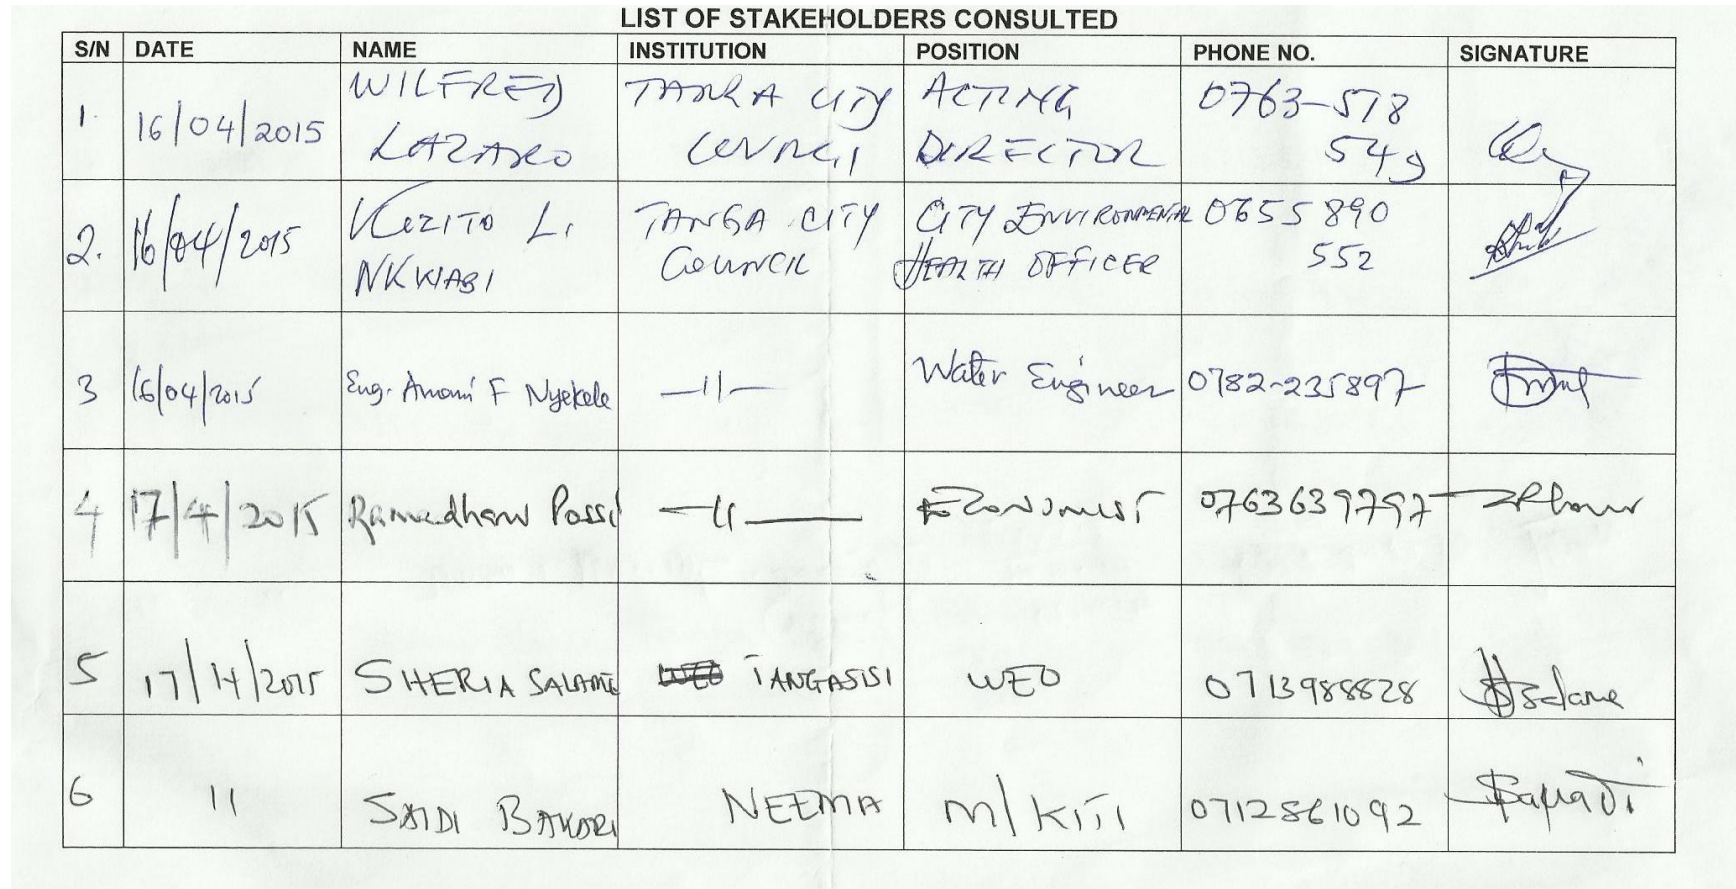 LIST OF STAKEHOLDERS CONSULTED
S/N DATE NAME INSTITUTION POSITION PHONE NO. SIGNATURE
1. 16/04/2015 WILFRED LAZARO TANGA CITY COUNCIL ACTING DIRECTOR 0763-578 549
2. 16/04/2015 KIZITO L. NKWABI TANGA CITY COUNCIL CITY ENVIRONMENTAL HEALTH OFFICER 0655 890 552
3 16/04/2015 Eng. Amani F Nyekele —11— Water Engineer 0782-235897
4 17/4/2015 Ramadhani Possi —11— Economist 0763639797
5 17/14/2015 SHERIA SALAME TANGASISI WEO 0713988828
6 11 SAIDI BAKARI NEEMA M/KITI 0712861092